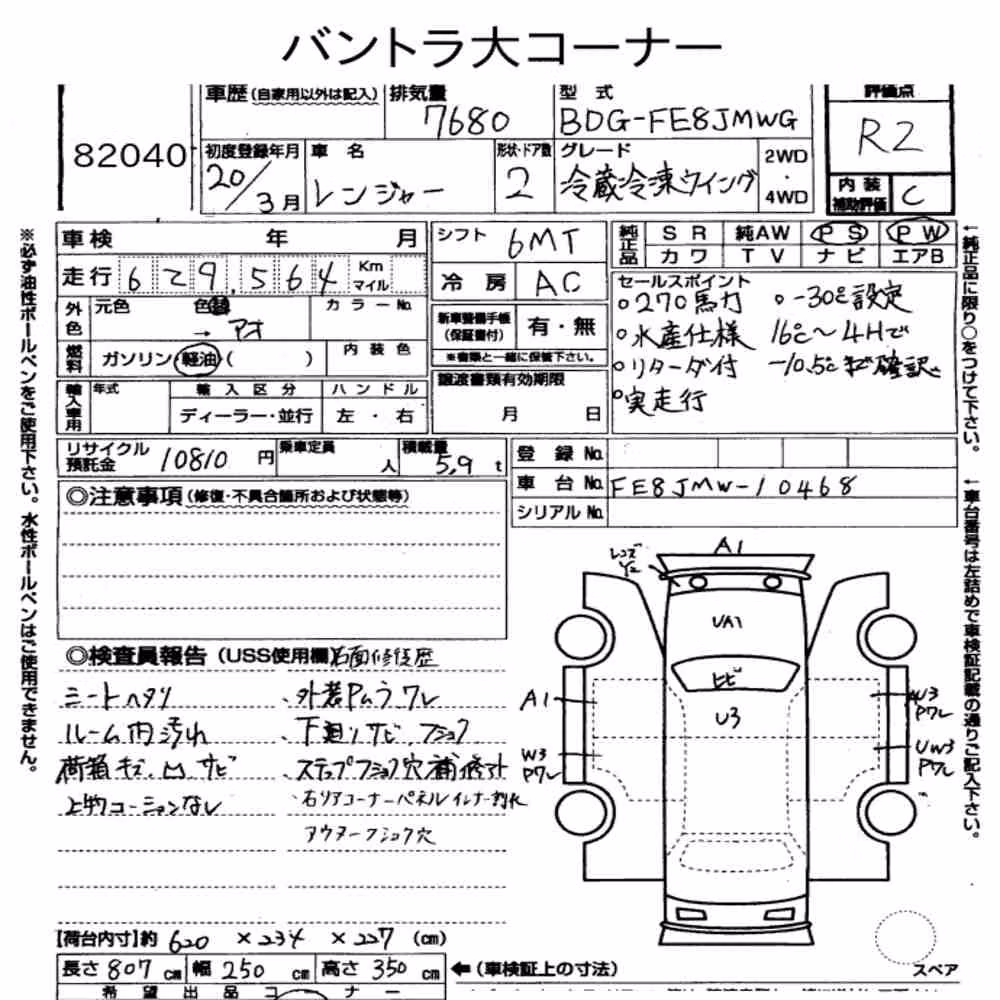 バントラ大コーナー
82040
車歴(自家用以外は記入)
排気量
7680
型式
BDG-FE8JMWG
評価点
R2
初度登録年月
20/3月
車名
レンジャー
形状・ドア数
2
グレード
冷蔵冷凍ウイング
2WD
・
4WD
内装
補助評価
C
車検 年 月
シフト
6MT
純正品
SR 純AW PS PW
カワ TV ナビ エアB
走行 629,564 Km マイル
冷房 AC
外色
元色
色替
→ アオ
カラーNo.
新車整備手帳
(保証書付)
有・無
※書類と一緒に保管下さい。
セールスポイント
○270馬力 ○-30℃設定
○水産仕様 16℃~4Hで
○リターダ付 -10.5℃まで確認
○実走行
燃料
ガソリン・軽油( )
内装色
輸入車用
年式
輸入区分
ディーラー・並行
ハンドル
左・右
譲渡書類有効期限
月 日
リサイクル預託金
10810円
乗車定員
人
積載量
5.9t
登録No.
車台No. FE8JMW-10468
シリアルNo.
◎注意事項(修復・不具合箇所および状態等)
◎検査員報告(USS使用欄)右面修復歴
シートヘタリ
ルーム内汚れ
荷箱キズ、凹、サビ
上物コーションなし
、外装Pムラ ワレ
、下廻りサビ、フショク
、ステップフショク穴補修アト
、右リアコーナーパネルインナー割れ
アウターフショク穴
レンズ
Y2
A1
UA1
ヒビ
U3
A1
W3
Pワレ
U3
Pワレ
UW3
Pワレ
【荷台内寸】約 620 × 234 × 227 (cm)
長さ 807 cm 幅 250 cm 高さ 350 cm
←(車検証上の寸法)
スペア
希望出品コーナー
※必ず油性ボールペンをご使用下さい。水性ボールペンはご使用できません。
←純正品に限り○をつけて下さい。
←車台番号は左詰めで車検証記載の通りご記入下さい。